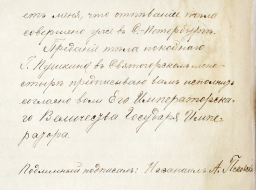 етъ меня, что отпѣваніе тѣла
совершено уже въ С-Петербургѣ.
Преданіе тѣла покойнаго
Г. Пушкина въ Святогорскомъ мона-
стырѣ предписываю вамъ исполнить
согласно воли Его Императорска-
го Величества Государя Импе-
ратора.
Подлинный подписалъ: